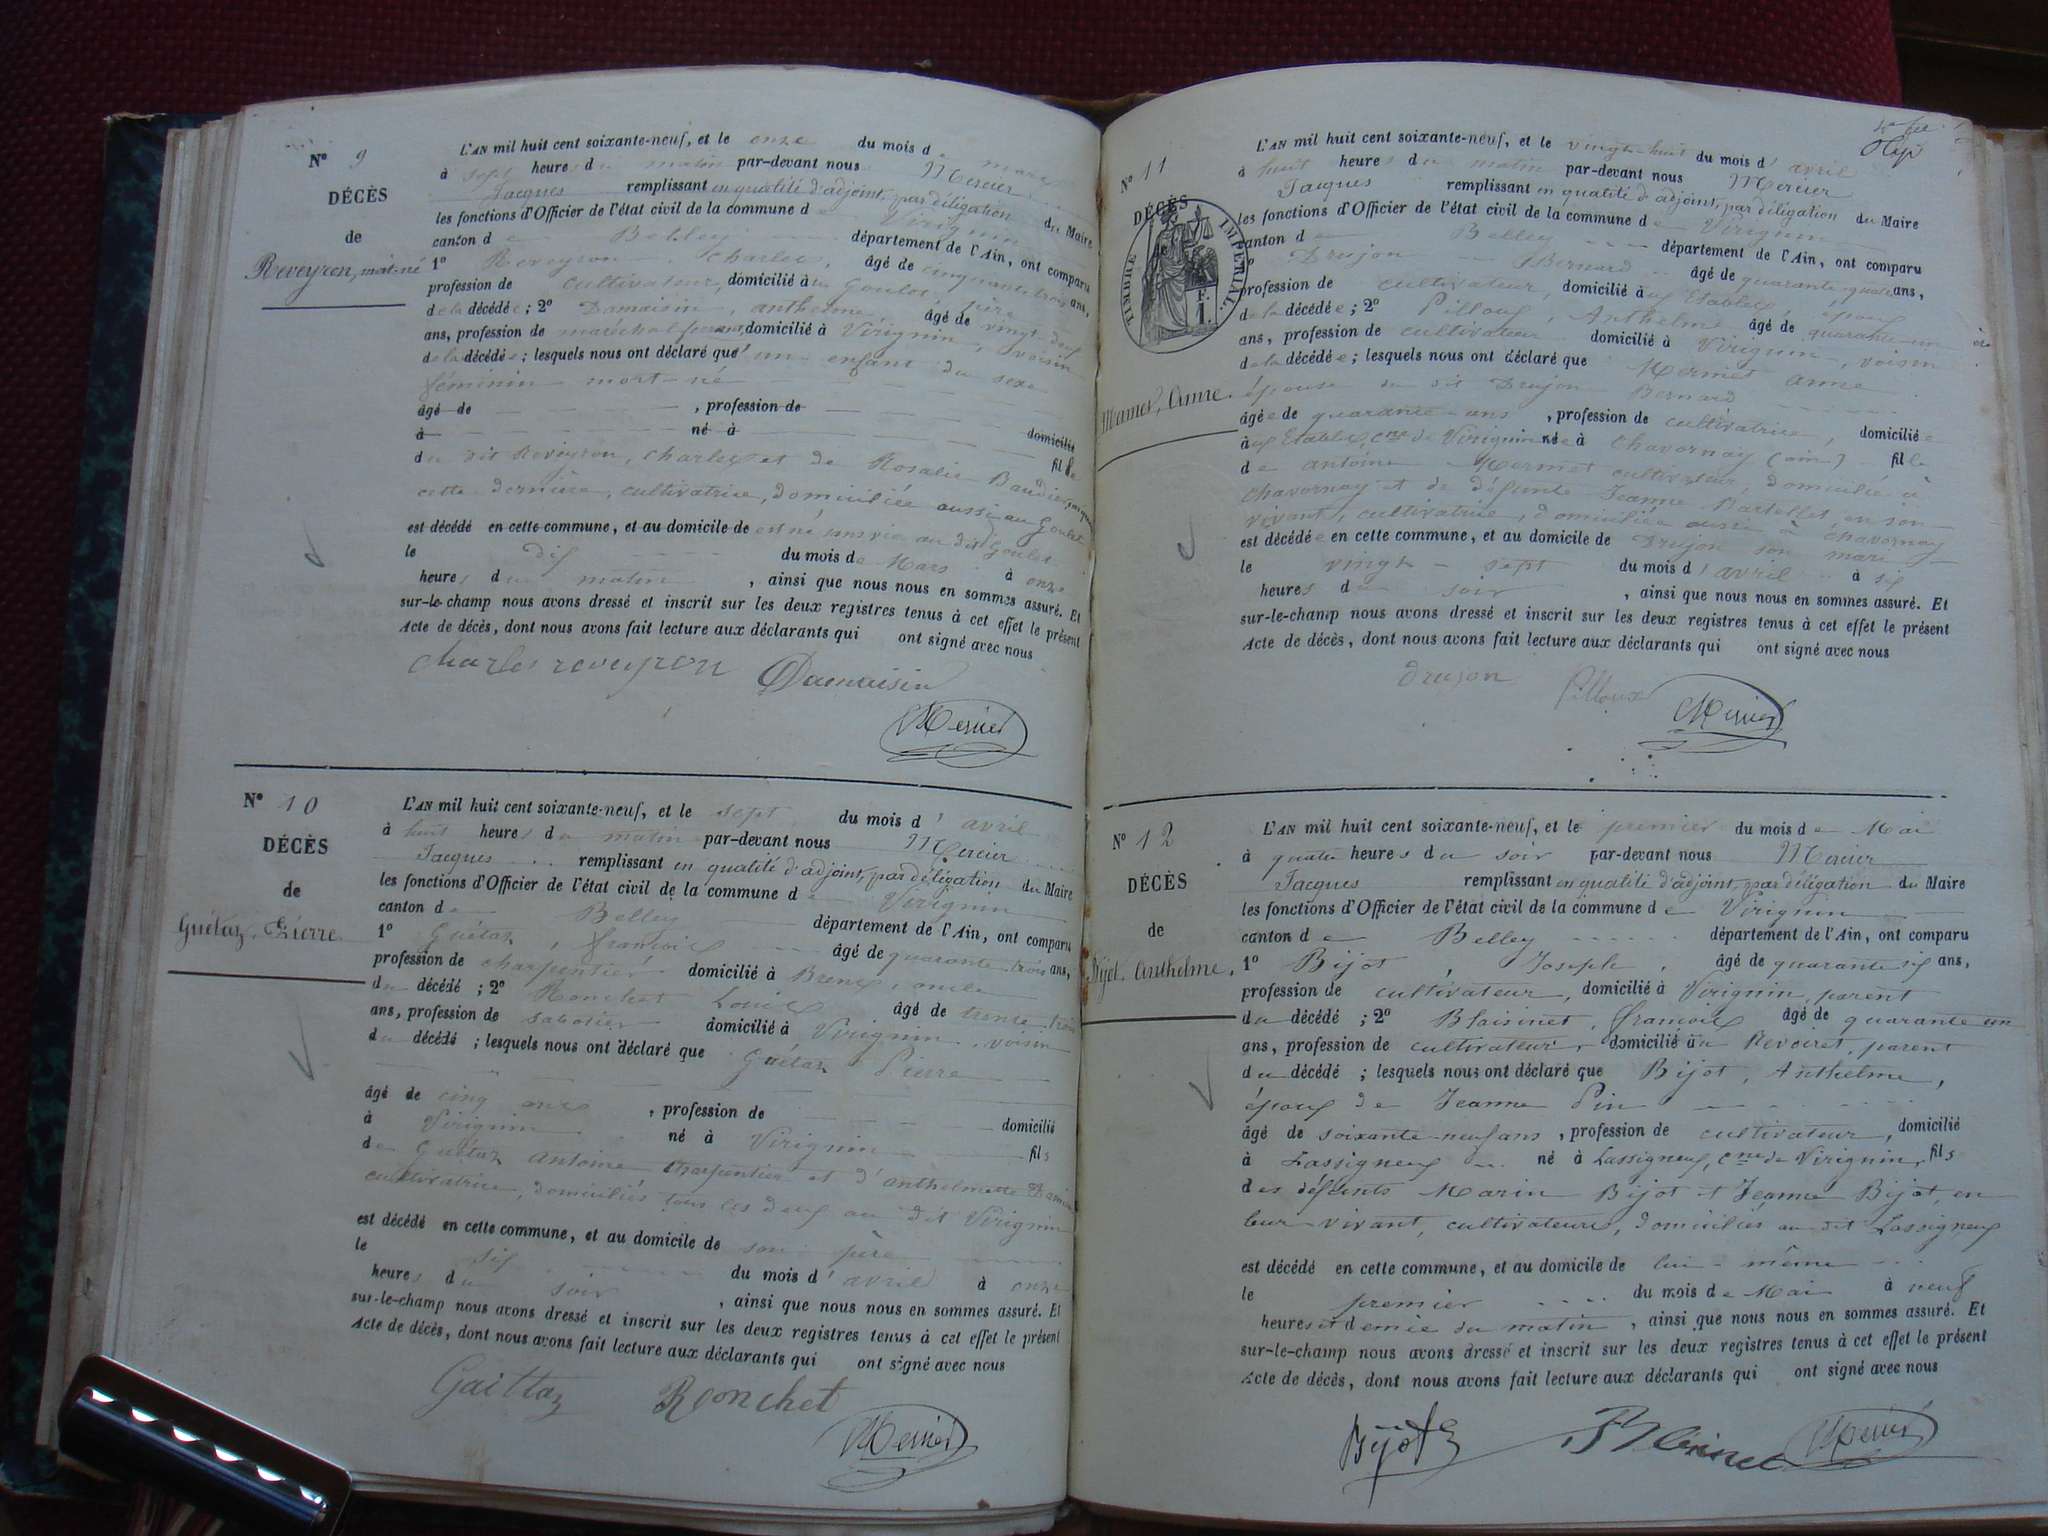 N° 9
DÉCÈS
de
Reveyron, mort-né
L'AN mil huit cent soixante-neuf, et le onze du mois de mars
à sept heures du matin par-devant nous Mercier
Jacques remplissant en qualité d'adjoint, par déligation du Maire
les fonctions d'Officier de l'état civil de la commune de Virignin
canton de Belley département de l'Ain, ont comparu
1° Reveyron, Charles, âgé de cinquante-trois ans,
profession de cultivateur, domicilié au Goulet, père
de la décédée ; 2° Damaisin, anthelme âgé de vingt-neuf
ans, profession de maréchal ferrant, domicilié à Virignin, voisin
de la décédée ; lesquels nous ont déclaré qu'un enfant du sexe
féminin mort-né
âgé de , profession de
à né à domicilié
du dit Reveyron, Charles et de Rosalie Baudier,
cette dernière, cultivatrice, domiciliée aussi au Goulet
est décédé en cette commune, et au domicile de est né sans vie au dit Goulet
le dix du mois de Mars à onze
heures du matin , ainsi que nous nous en sommes assuré. Et
sur-le-champ nous avons dressé et inscrit sur les deux registres tenus à cet effet le présent
Acte de décès, dont nous avons fait lecture aux déclarants qui ont signé avec nous
Charles reveyron Damaisin
Mercier
N° 10
DÉCÈS
de
Guétaz, Pierre
L'AN mil huit cent soixante-neuf, et le sept du mois d'avril
à huit heures du matin par-devant nous Mercier
Jacques remplissant en qualité d'adjoint, par déligation du Maire
les fonctions d'Officier de l'état civil de la commune de Virignin
canton de Belley département de l'Ain, ont comparu
1° Guétaz, françois âgé de quarante-trois ans,
profession de charpentier domicilié à Brens, oncle
du décédé ; 2° Ronchet Louis âgé de trente-trois
ans, profession de sabotier domicilié à Virignin, voisin
du décédé ; lesquels nous ont déclaré que Guétaz Pierre
âgé de cinq ans , profession de domicilié
à Virignin né à Virignin fils
de Guétaz antoine charpentier et d'anthelmette
cultivatrice, domiciliés tous les deux au dit Virignin
est décédé en cette commune, et au domicile de son père
le six du mois d'avril à onze
heures du soir , ainsi que nous nous en sommes assuré. Et
sur-le-champ nous avons dressé et inscrit sur les deux registres tenus à cet effet le présent
Acte de décès, dont nous avons fait lecture aux déclarants qui ont signé avec nous
Gaittaz Ronchet
Mercier
N° 11
DÉCÈS
TIMBRE IMPÉRIAL
1 F.
Mermet, Anne.
L'AN mil huit cent soixante-neuf, et le vingt-huit du mois d'avril
à huit heures du matin par-devant nous Mercier
Jacques remplissant en qualité d'adjoint, par déligation du Maire
les fonctions d'Officier de l'état civil de la commune de Virignin
canton de Belley département de l'Ain, ont comparu
1° Drujon Bernard âgé de quarante-quatre ans,
profession de cultivateur, domicilié aux Etables, époux
de la décédée ; 2° Pilloux, Anthelme âgé de quarante-un
ans, profession de cultivateur domicilié à Virignin, voisin
de la décédée ; lesquels nous ont déclaré que Mermet anne
épouse du dit Drujon Bernard
âgée de quarante ans , profession de cultivatrice, domiciliée
aux Etables, cne de Virignin née à Chavornay (ain) fille
de antoine Mermet cultivateur, domicilié à
Chavornay et de défunte Jeanne Bartellet, en son
vivant, cultivatrice, domiciliée aussi à Chavornay
est décédée en cette commune, et au domicile de Drujon son mari
le vingt-sept du mois d'avril à six
heures du soir , ainsi que nous nous en sommes assuré. Et
sur-le-champ nous avons dressé et inscrit sur les deux registres tenus à cet effet le présent
Acte de décès, dont nous avons fait lecture aux déclarants qui ont signé avec nous
Drujon Pilloux Mercier
N° 12
DÉCÈS
de
Bijot, Anthelme.
L'AN mil huit cent soixante-neuf, et le premier du mois de Mai
à quatre heures du soir par-devant nous Mercier
Jacques remplissant en qualité d'adjoint, par déligation du Maire
les fonctions d'Officier de l'état civil de la commune de Virignin
canton de Belley département de l'Ain, ont comparu
1° Bijot, Joseph, âgé de quarante six ans,
profession de cultivateur, domicilié à Virignin, parent
du décédé ; 2° Blaisinet, françois âgé de quarante un
ans, profession de cultivateur, domicilié au Revoiret, parent
du décédé ; lesquels nous ont déclaré que Bijot, Anthelme,
époux de Jeanne Pin
âgé de soixante-neuf ans , profession de cultivateur, domicilié
à Lassigneux né à Lassigneux, cne de Virignin, fils
des défunts Marin Bijot et Jeanne Bijot, en
leur vivant, cultivateurs, domiciliés au dit Lassigneux
est décédé en cette commune, et au domicile de lui-même
le premier du mois de Mai à neuf
heures et demie du matin , ainsi que nous nous en sommes assuré. Et
sur-le-champ nous avons dressé et inscrit sur les deux registres tenus à cet effet le présent
Acte de décès, dont nous avons fait lecture aux déclarants qui ont signé avec nous
Bijot Blaisinet Mercier